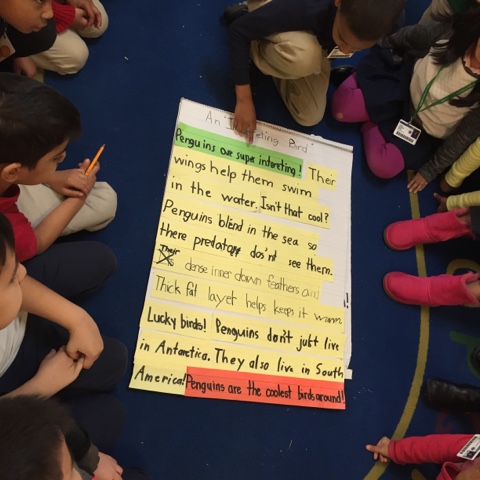 An "Interesting Bird"
Penguins are super interesting! Their
wings help them swim
in the water. Isn't that cool?
Penguins blend in the sea so
there predators dos'nt see them.
Their dense inner down feathers and
Thick fat layer helps keep it warm.
Lucky birds! Penguins don't just live
in Antarctica. They also live in South
America! Penguins are the coolest birds around!